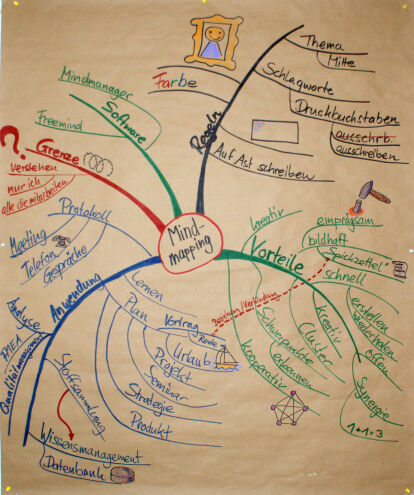 Mind-
mapping
Regeln
Thema
Mitte
Schlagworte
Druckbuchstaben
ausschrb.
ausschreiben
Auf Ast schreiben
Farbe
Software
Mindmanager
Freemind
?
Grenze
verstehen
nur ich
alle die mitarbeiten
Vorteile
kreativ
einprägsam
bildhaft
"Spickzettel"
schnell
erstellen
wiederholen
offen
Synergie
1+1=3
kreativ
Cluster
Schwerpunkte
erkennen
kooperativ
Anwendung
Protokoll
Meeting
Telefon
Gespräche
Lernen
Plan
Vortrag
Reden
Urlaub
Projekt
Seminar
Strategie
Produkt
Analyse
FMEA
Qualitätsmanagement
Stoffsammlung
Wissensmanagement
Datenbank